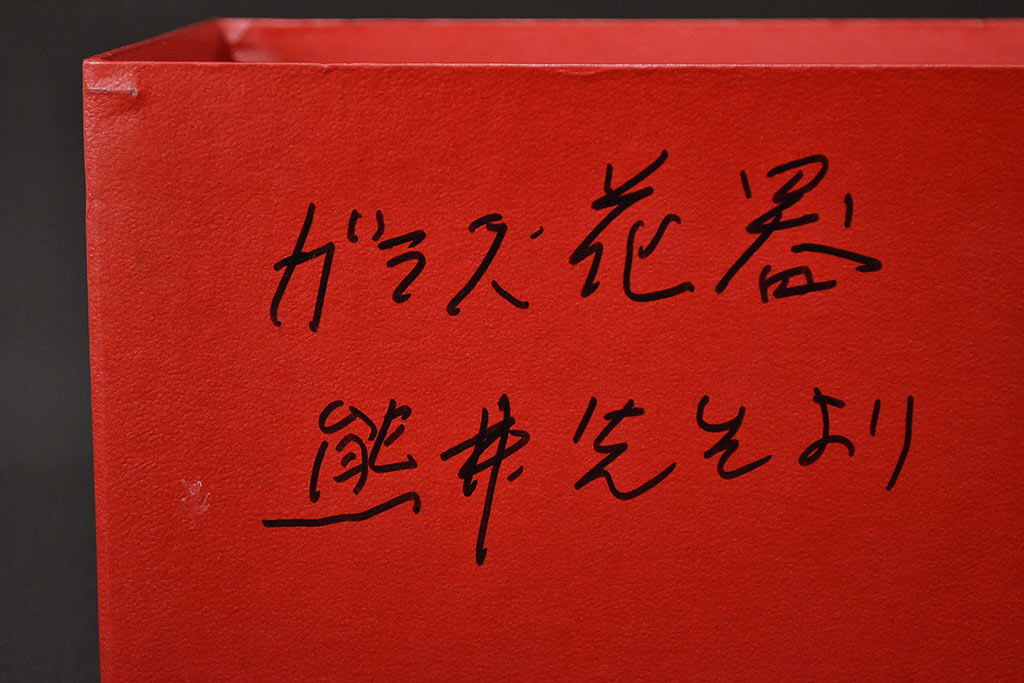 ガラス花器
熊井先生より